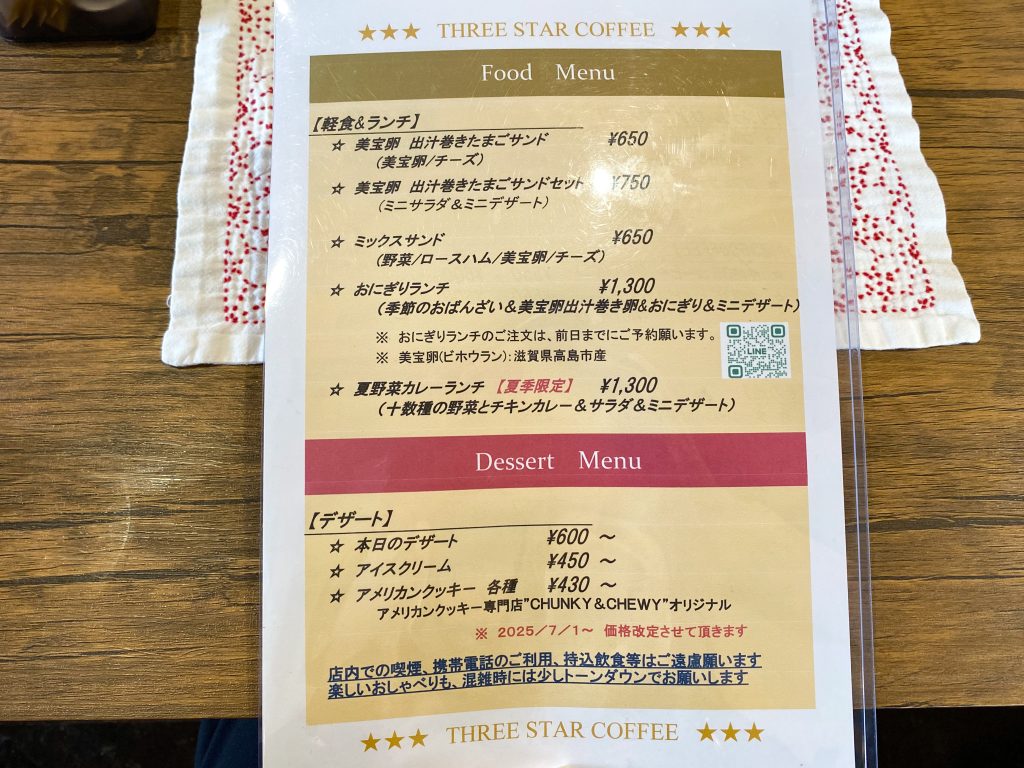 ★★★ THREE STAR COFFEE ★★★
Food Menu
【軽食&ランチ】
☆ 美宝卵 出汁巻きたまごサンド ¥650
(美宝卵/チーズ)
☆ 美宝卵 出汁巻きたまごサンドセット ¥750
(ミニサラダ&ミニデザート)
☆ ミックスサンド ¥650
(野菜/ロースハム/美宝卵/チーズ)
☆ おにぎりランチ ¥1,300
(季節のおばんざい&美宝卵出汁巻き卵&おにぎり&ミニデザート)
※ おにぎりランチのご注文は、前日までにご予約願います。
※ 美宝卵(ビホウラン):滋賀県高島市産
LINE
☆ 夏野菜カレーランチ 【夏季限定】 ¥1,300
(十数種の野菜とチキンカレー&サラダ&ミニデザート)
Dessert Menu
【デザート】
☆ 本日のデザート ¥600 ~
☆ アイスクリーム ¥450 ~
☆ アメリカンクッキー 各種 ¥430 ~
アメリカンクッキー専門店"CHUNKY&CHEWY"オリジナル
※ 2025/7/1~ 価格改定させて頂きます
店内での喫煙、携帯電話のご利用、持込飲食等はご遠慮願います
楽しいおしゃべりも、混雑時には少しトーンダウンでお願いします
★★★ THREE STAR COFFEE ★★★